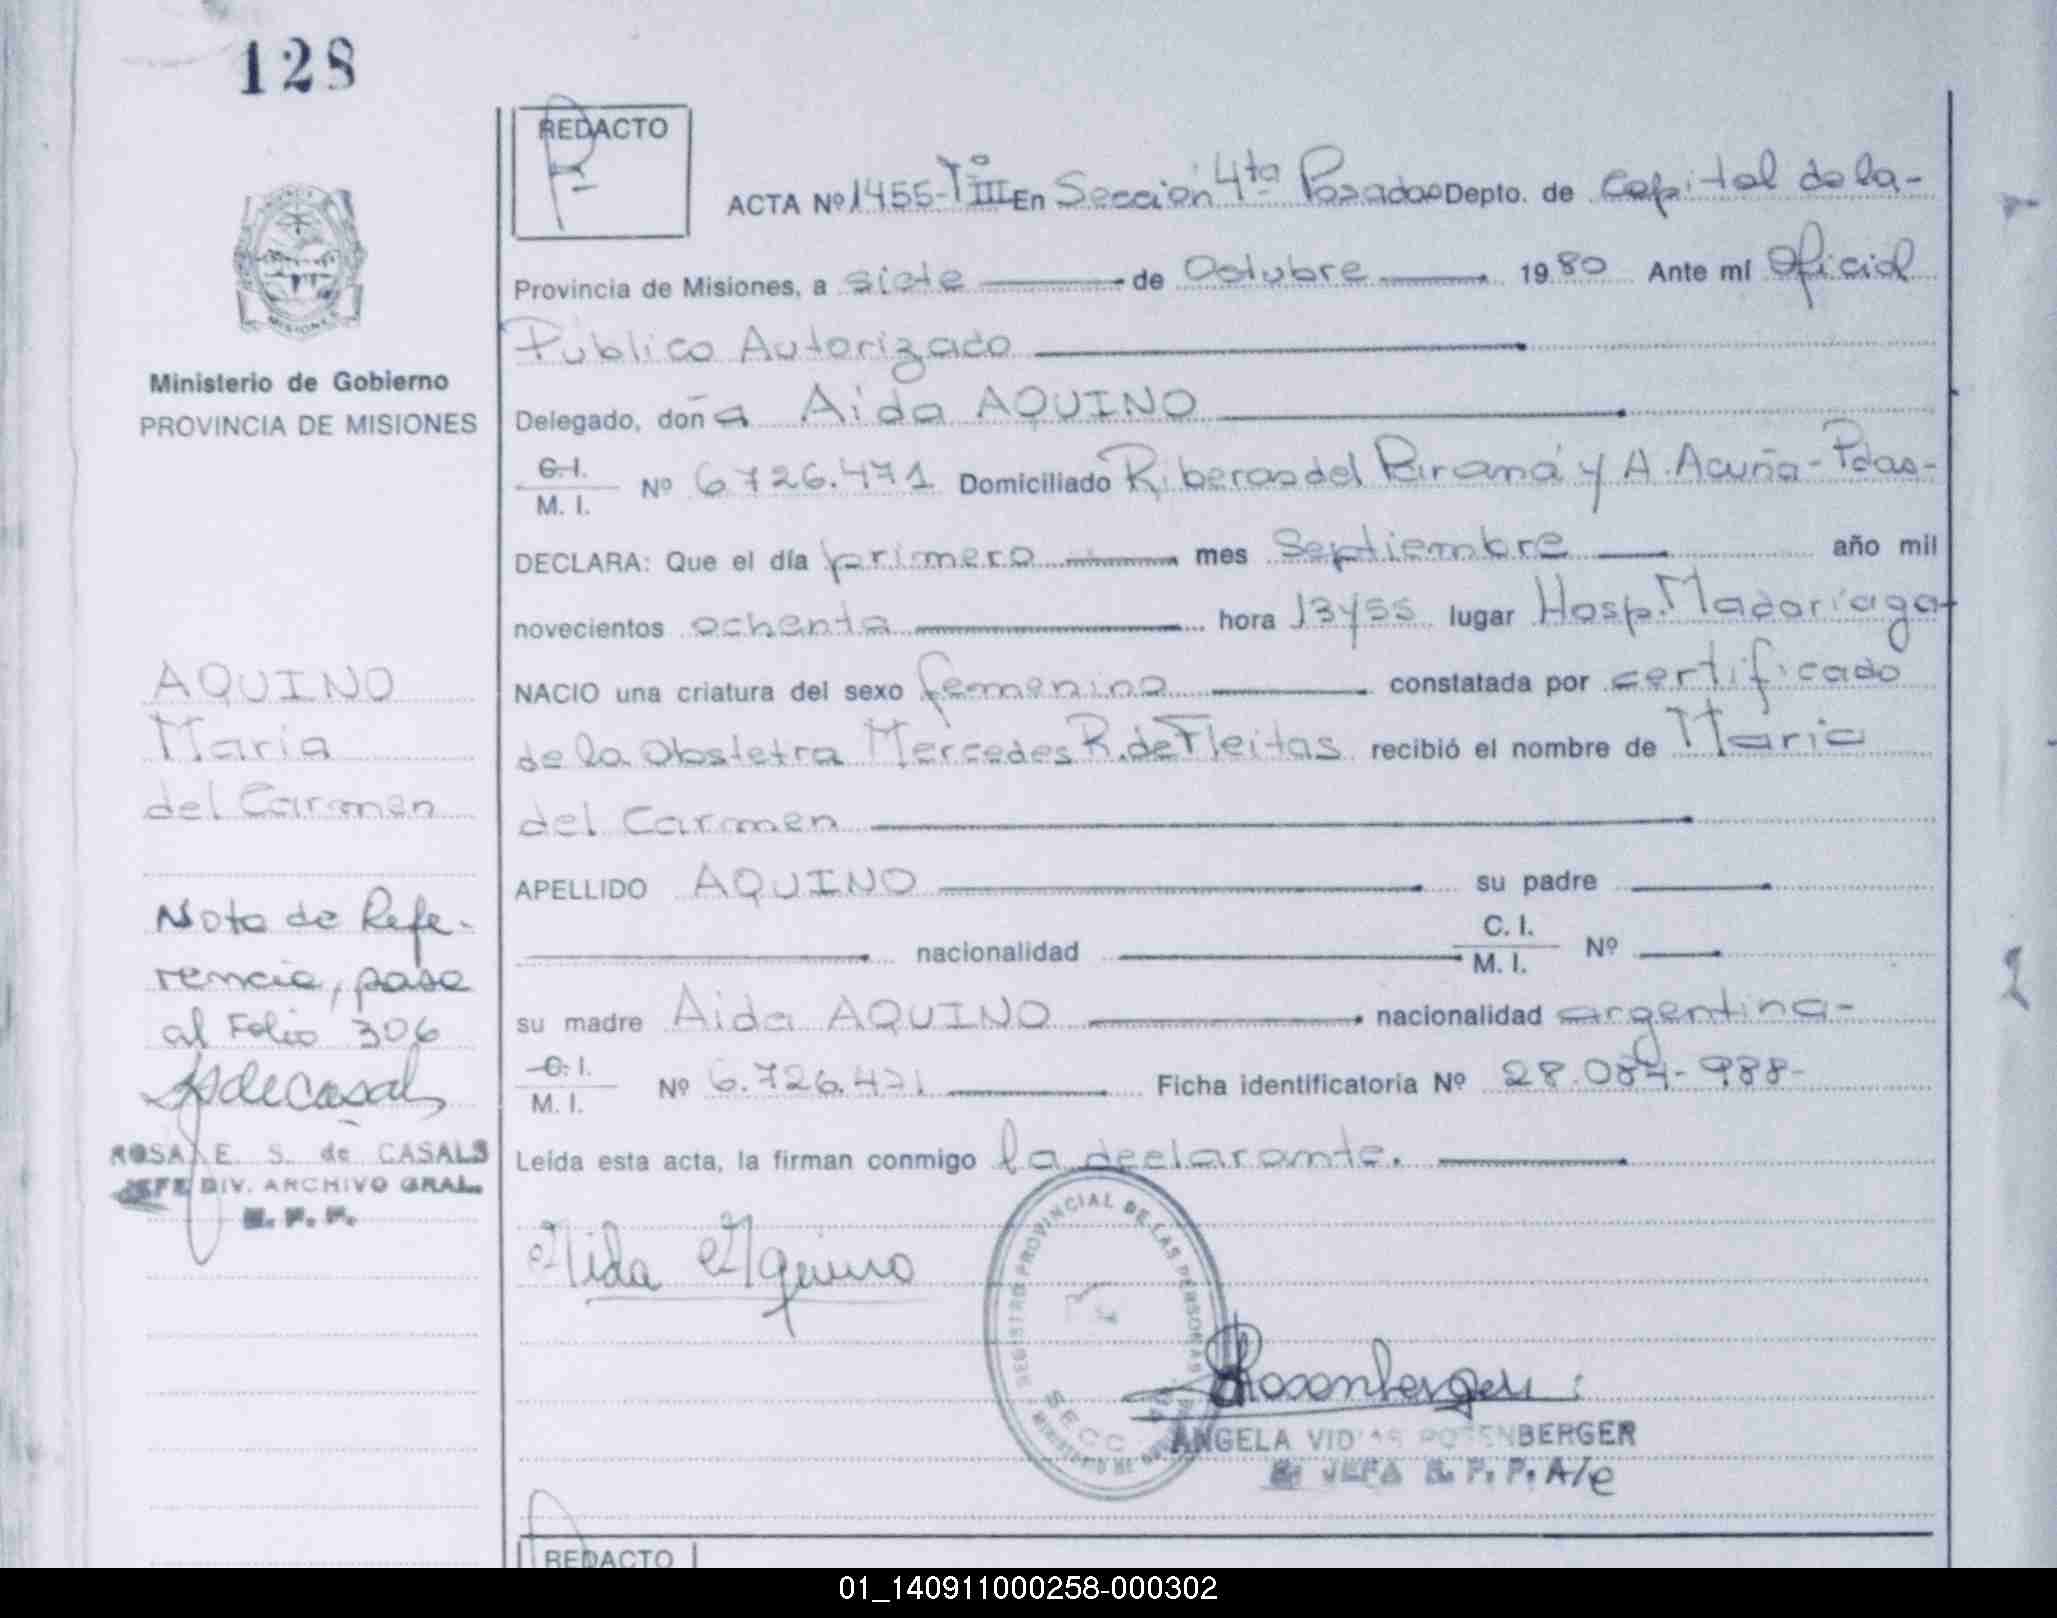 128
REDACTO
ACTA Nº 1455-Tº III En Sección 4ta Posadas Depto. de Capital de la-
Provincia de Misiones, a siete de Octubre 1980 Ante mí Oficial
Público Autorizado
Ministerio de Gobierno
PROVINCIA DE MISIONES
Delegado, doña Aida AQUINO
C. I.
M. I. Nº 6726.471 Domiciliado Riberas del Paraná y A. Acuña-Pdas-
DECLARA: Que el día primero mes Septiembre año mil
novecientos ochenta hora 13y55 lugar Hosp. Madariaga-
AQUINO
Maria
del Carmen
NACIO una criatura del sexo femenino constatada por certificado
de la Obstetra Mercedes R. de Fleitas recibió el nombre de Maria
del Carmen
APELLIDO AQUINO su padre
nacionalidad C. I.
M. I. Nº
Nota de Refe-
rencia, pasa
al Folio 306
su madre Aida AQUINO nacionalidad argentina-
C. I.
M. I. Nº 6.726.471 Ficha identificatoria Nº 28.084-988-
ROSA E. S. de CASALS
JEFE DIV. ARCHIVO GRAL.
Leída esta acta, la firman conmigo la declarante.
Aida Aquino
REGISTRO PROVINCIAL DE LAS PERSONAS
SECC
MINISTERIO DE
Rosenberger
ANGELA ROSENBERGER
JEFA R. P. P. A/c
REDACTO
01_140911000258-000302